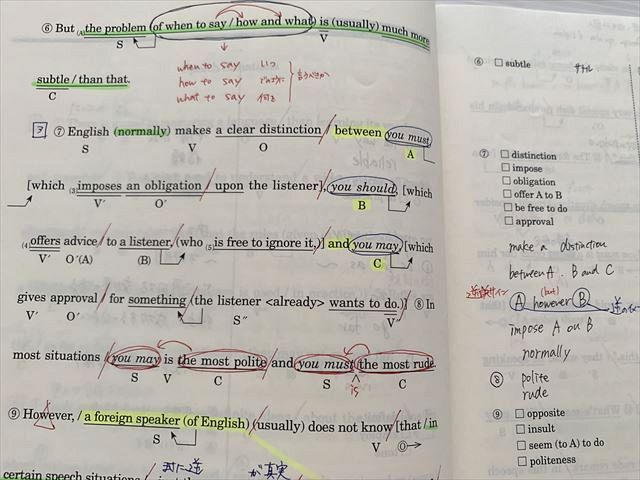 ⑥ But (A)the problem (of when to say / how and what) is (usually) much more
S V
subtle / than that.
C
when to say いつ
how to say どのように
what to say 何を
言うべきか
ア ⑦ English (normally) makes a clear distinction / between you must
S V O A
[which (3)imposes an obligation / upon the listener], you should, [which
V′ O′ B
(4)offers advice / to a listener, (who (5)is free to ignore it,)] and you may, [which
V′ O′(A) (B) C
gives approval / for something / (the listener <already> wants to do.)] ⑧ In
V′ O′ S″ V
most situations / you may is the most polite / and you must / the most rude.
S V C S is C
⑨ However, / a foreign speaker (of English) / (usually) does not know / [that / in
S V Ⓞ→
certain speech situations
が真実
⑥ □ subtle サトル
⑦ □ distinction
□ impose
□ obligation
□ offer A to B
□ be free to do
□ approval
make a distinction
between A, B and C
(but)
Ⓐ however Ⓑ
impose A on B
normally
⑧ polite
rude
⑨ □ opposite
□ insult
□ seem (to A) to do
□ politeness